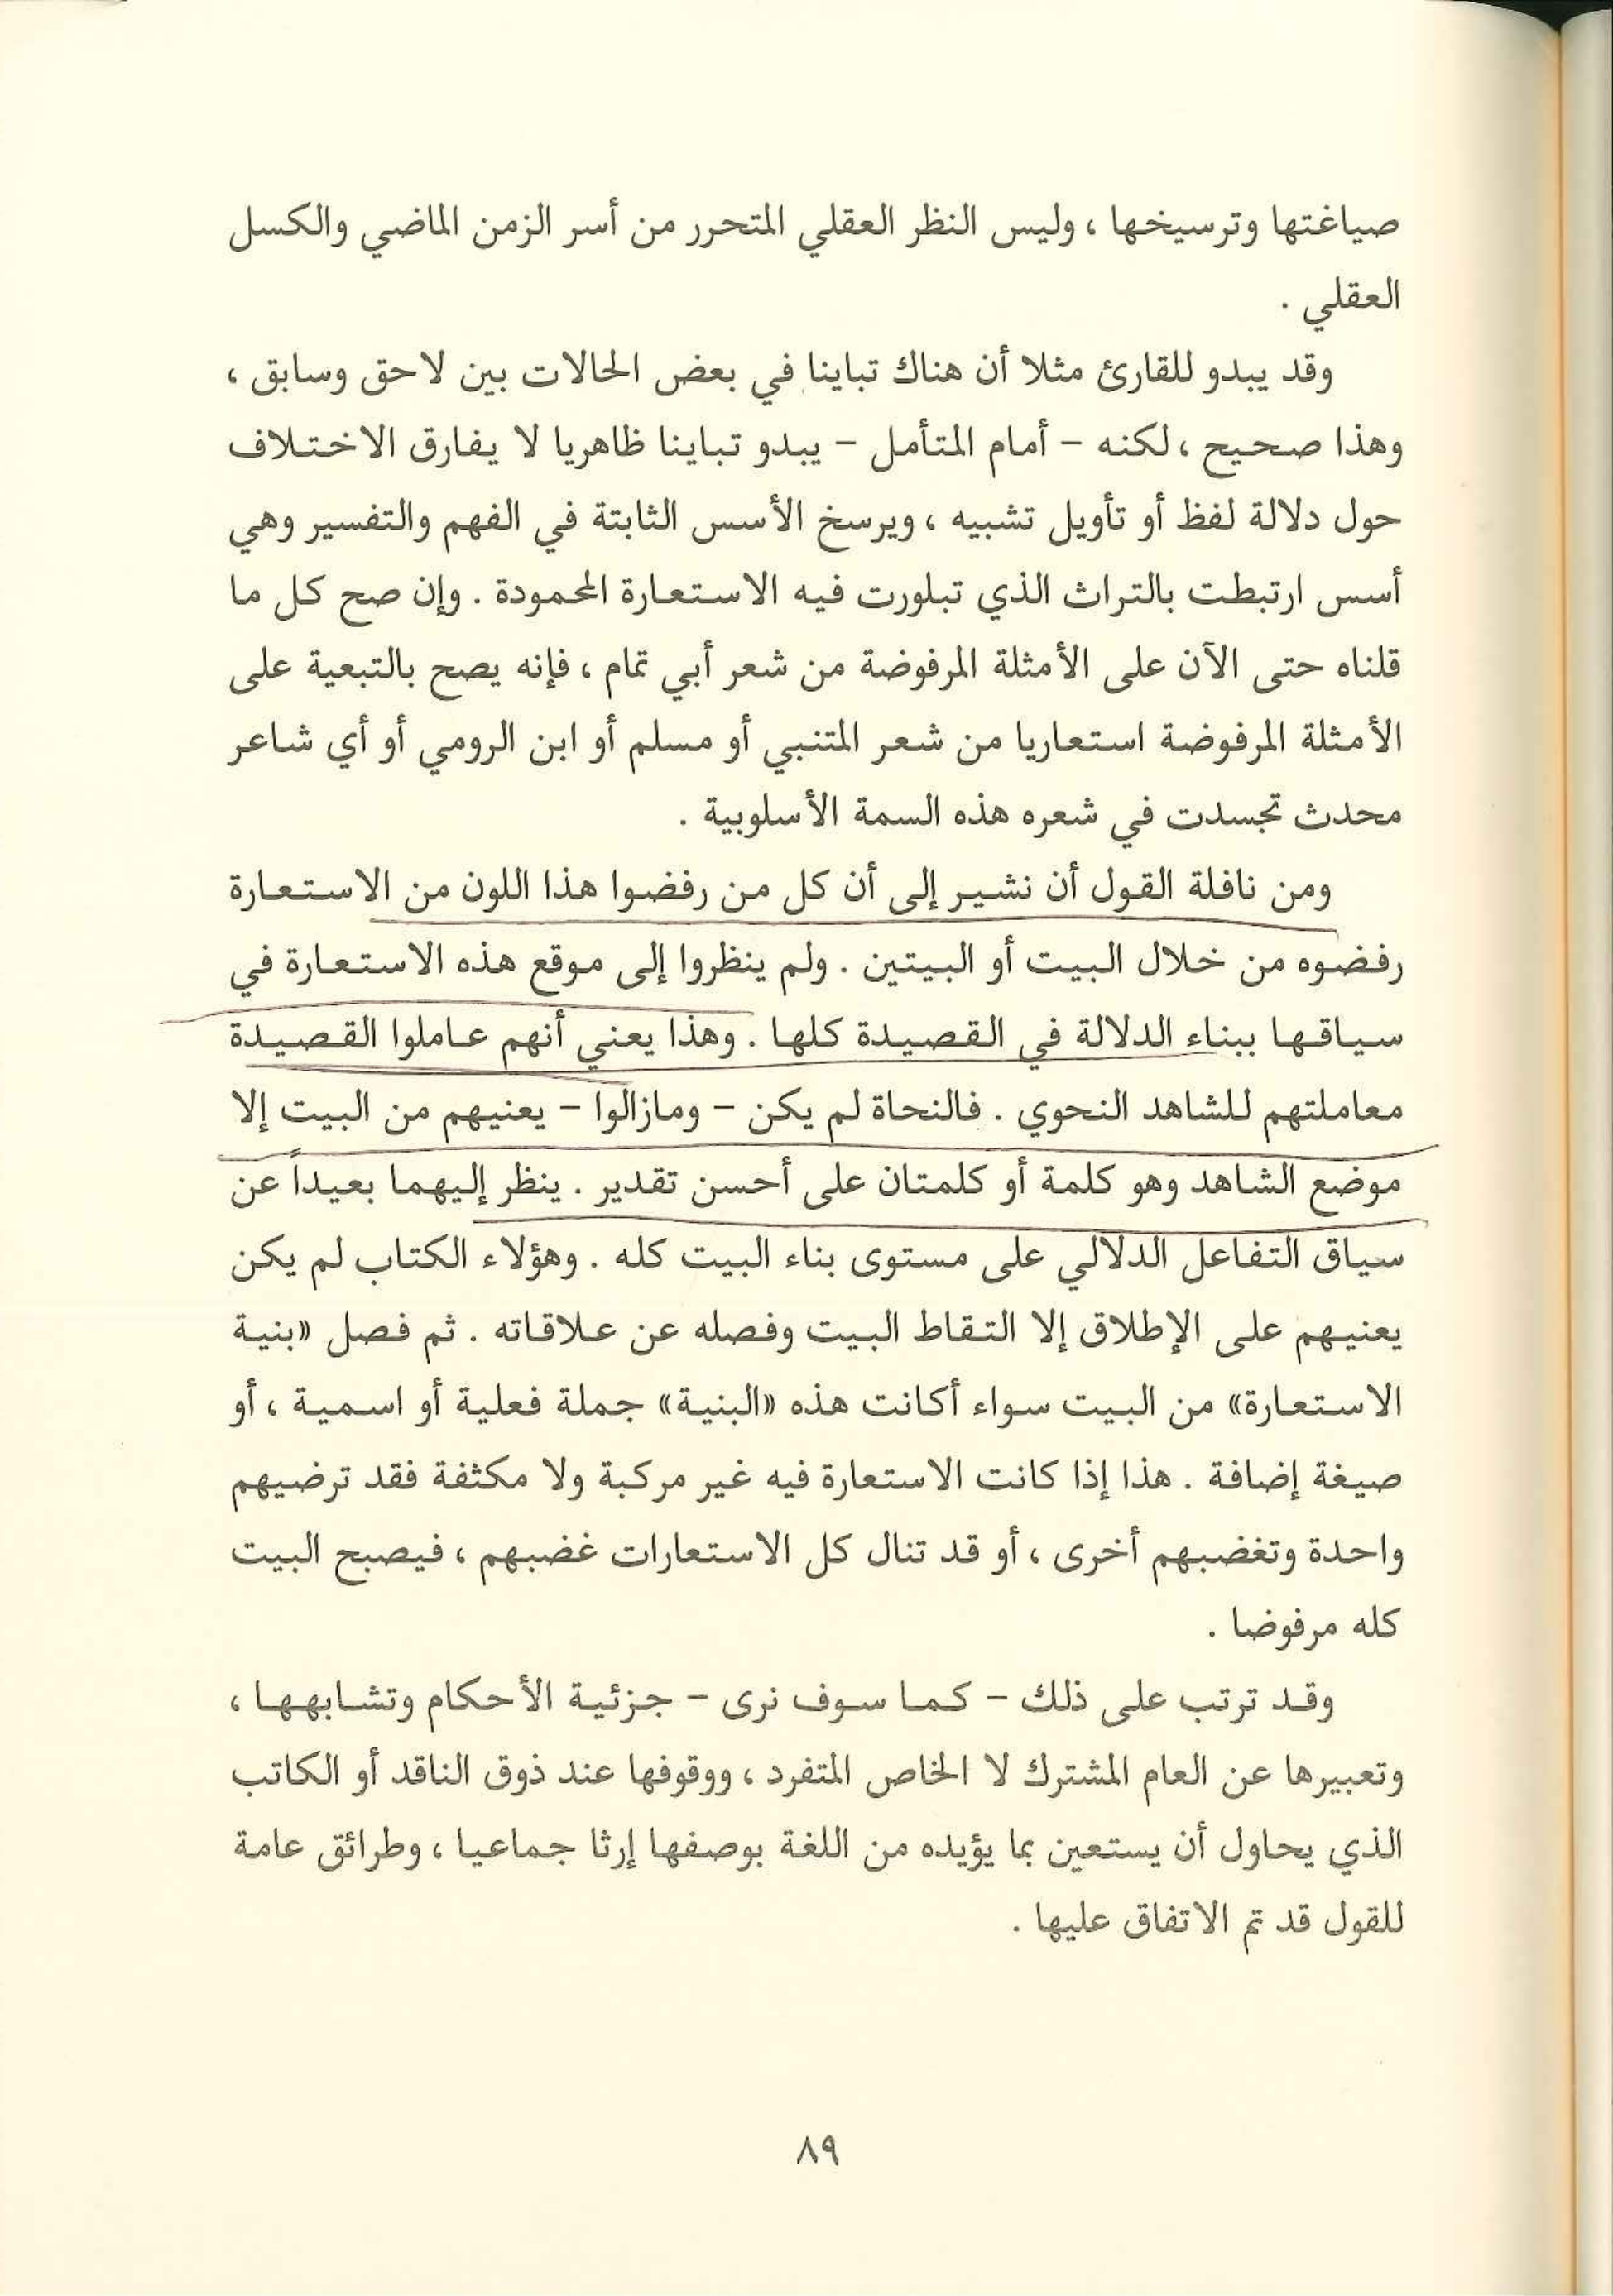 صياغتها وترسيخها ، وليس النظر العقلي المتحرر من أسر الزمن الماضي والكسل
العقلي .
وقد يبدو للقارئ مثلا أن هناك تباينا في بعض الحالات بين لاحق وسابق ،
وهذا صحيح ، لكنه – أمام المتأمل – يبدو تباينا ظاهريا لا يفارق الاختلاف
حول دلالة لفظ أو تأويل تشبيه ، ويرسخ الأسس الثابتة في الفهم والتفسير وهي
أسس ارتبطت بالتراث الذي تبلورت فيه الاستعارة المحمودة . وإن صح كل ما
قلناه حتى الآن على الأمثلة المرفوضة من شعر أبي تمام ، فإنه يصح بالتبعية على
الأمثلة المرفوضة استعاريا من شعر المتنبي أو مسلم أو ابن الرومي أو أي شاعر
محدث تجسدت في شعره هذه السمة الأسلوبية .
ومن نافلة القول أن نشير إلى أن كل من رفضوا هذا اللون من الاستعارة
رفضوه من خلال البيت أو البيتين . ولم ينظروا إلى موقع هذه الاستعارة في
سياقها ببناء الدلالة في القصيدة كلها . وهذا يعني أنهم عاملوا القصيدة
معاملتهم للشاهد النحوي . فالنحاة لم يكن – ومازالوا – يعنيهم من البيت إلا
موضع الشاهد وهو كلمة أو كلمتان على أحسن تقدير . ينظر إليهما بعيداً عن
سياق التفاعل الدلالي على مستوى بناء البيت كله . وهؤلاء الكتاب لم يكن
يعنيهم على الإطلاق إلا التقاط البيت وفصله عن علاقاته . ثم فصل «بنية
الاستعارة» من البيت سواء أكانت هذه «البنية» جملة فعلية أو اسمية ، أو
صيغة إضافة . هذا إذا كانت الاستعارة فيه غير مركبة ولا مكثفة فقد ترضيهم
واحدة وتغضبهم أخرى ، أو قد تنال كل الاستعارات غضبهم ، فيصبح البيت
كله مرفوضا .
وقد ترتب على ذلك – كما سوف نرى – جزئية الأحكام وتشابهها ،
وتعبيرها عن العام المشترك لا الخاص المتفرد ، ووقوفها عند ذوق الناقد أو الكاتب
الذي يحاول أن يستعين بما يؤيده من اللغة بوصفها إرثا جماعيا ، وطرائق عامة
للقول قد تم الاتفاق عليها .
٨٩